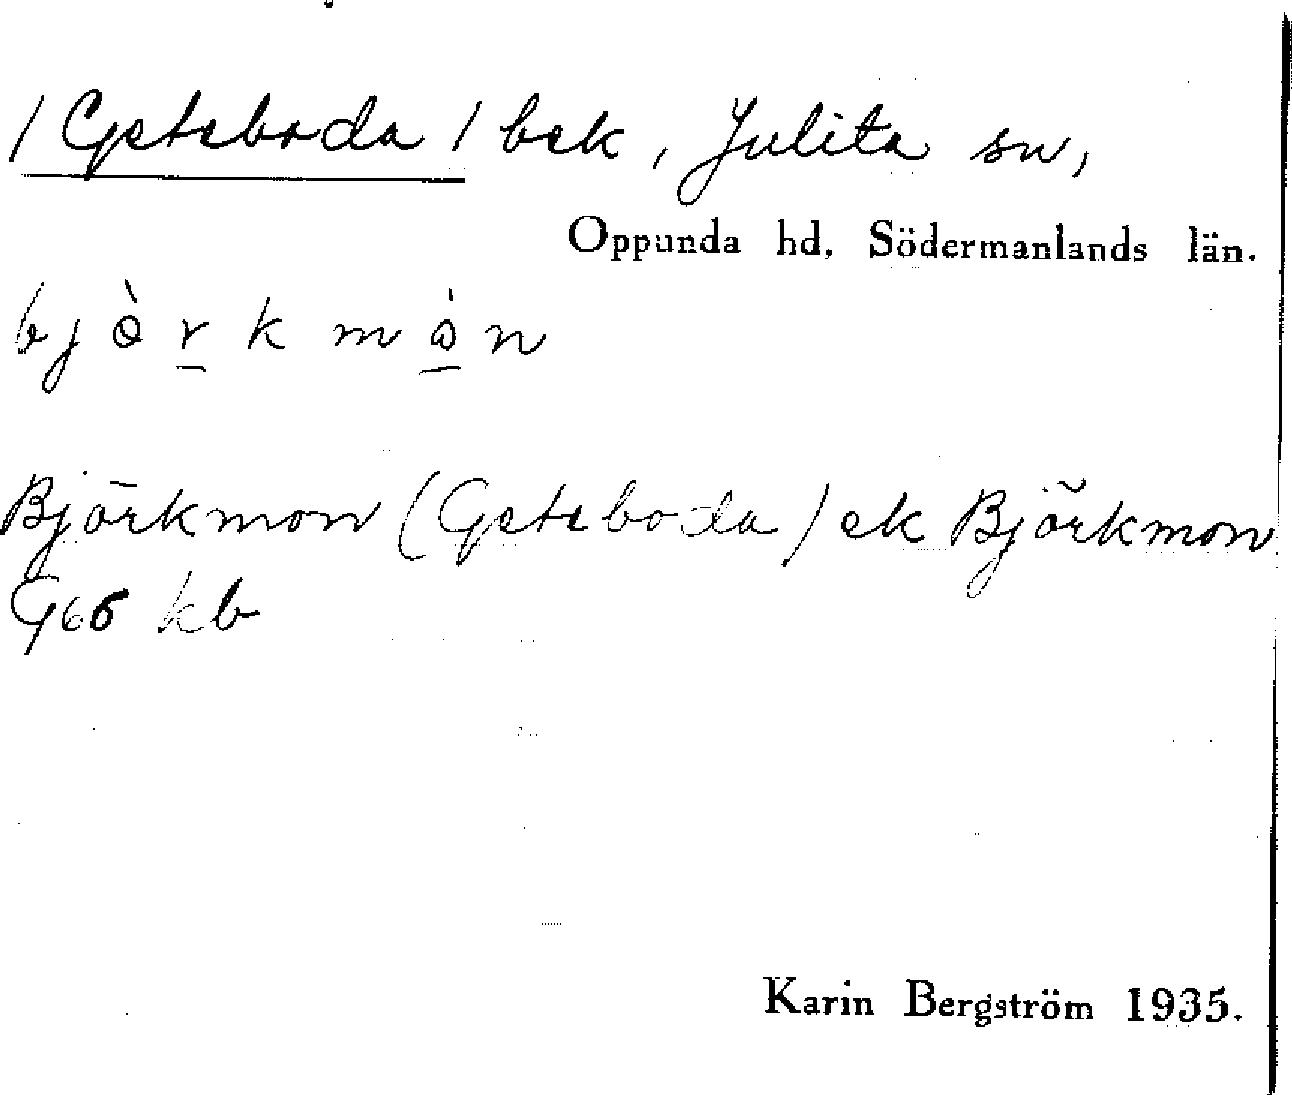 / Geteboda / bek, Julita sn,
Oppunda hd. Södermanlands län.
bjɵ̀rkmån
Björkmon (Geteboda) ek Björkmon
G66 kb
Karin Bergström 1935.